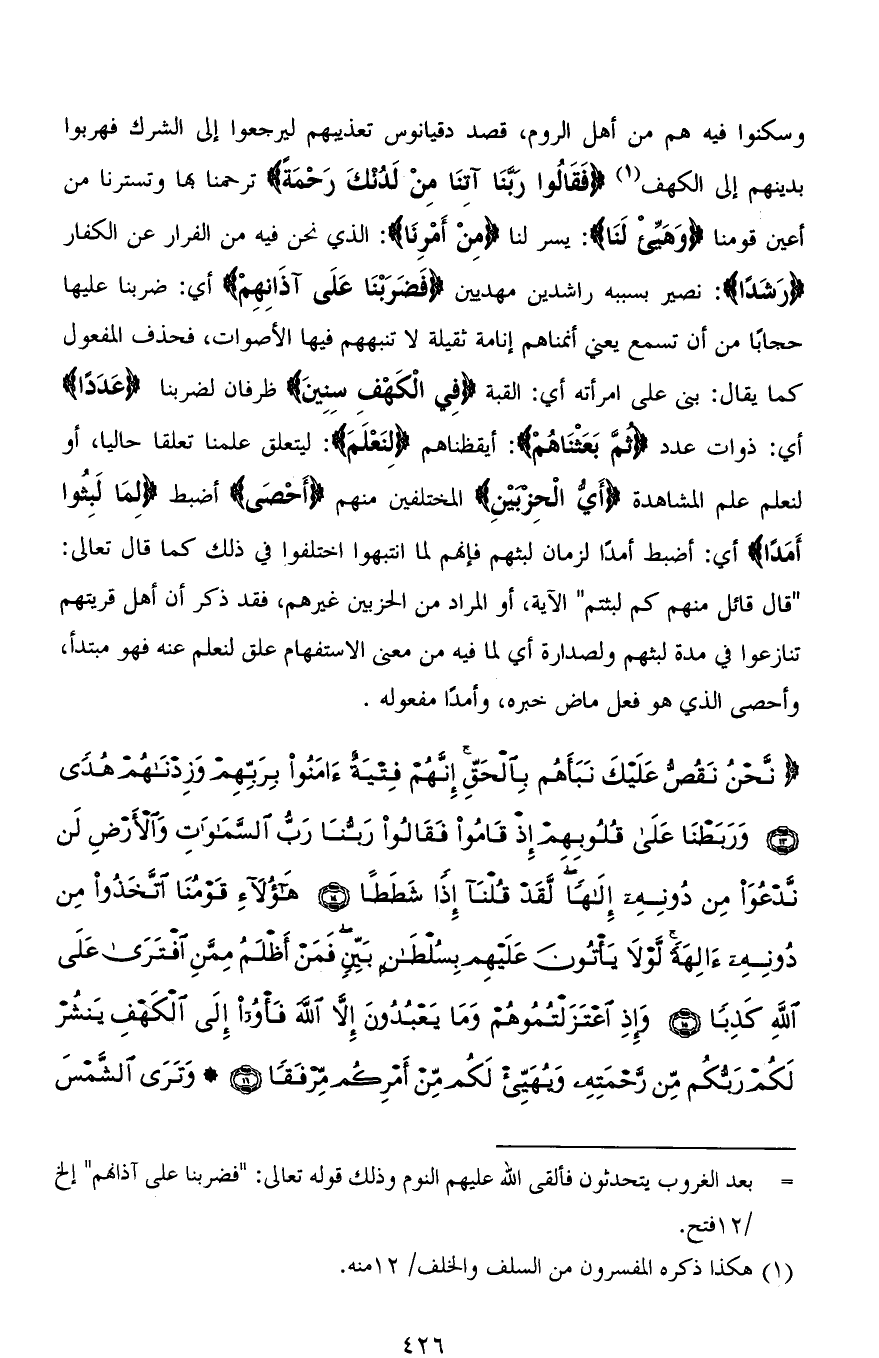 وسكنوا فيه هم من أهل الروم، قصد دقيانوس تعذيبهم ليرجعوا إلى الشرك فهربوا
بدينهم إلى الكهف(١) ﴿فَقَالُوا رَبَّنَا آتِنَا مِنْ لَدُنْكَ رَحْمَةً﴾ ترحمنا بها وتسترنا من
أعين قومنا ﴿وَهَيِّئْ لَنَا﴾: يسر لنا ﴿مِنْ أَمْرِنَا﴾: الذي نحن فيه من الفرار عن الكفار
﴿رَشَدًا﴾: نصير بسببه راشدين مهديين ﴿فَضَرَبْنَا عَلَى آذَانِهِمْ﴾ أي: ضربنا عليها
حجابًا من أن تسمع يعني أنمناهم إنامة ثقيلة لا تنبههم فيها الأصوات، فحذف المفعول
كما يقال: بنى على امرأته أي: القبة ﴿فِي الْكَهْفِ سِنِينَ﴾ ظرفان لضربنا ﴿عَدَدًا﴾
أي: ذوات عدد ﴿ثُمَّ بَعَثْنَاهُمْ﴾: أيقظناهم ﴿لِنَعْلَمَ﴾: ليتعلق علمنا تعلقا حاليا، أو
لنعلم علم المشاهدة ﴿أَيُّ الْحِزْبَيْنِ﴾ المختلفين منهم ﴿أَحْصَى﴾ أضبط ﴿لِمَا لَبِثُوا
أَمَدًا﴾ أي: أضبط أمدًا لزمان لبثهم فإنهم لما انتبهوا اختلفوا في ذلك كما قال تعالى:
"قال قائل منهم كم لبثتم" الآية، أو المراد من الحزبين غيرهم، فقد ذكر أن أهل قريتهم
تنازعوا في مدة لبثهم ولصدارة أي لما فيه من معنى الاستفهام علق لنعلم عنه فهو مبتدأ،
وأحصى الذي هو فعل ماض خبره، وأمدًا مفعوله .
﴿ نَّحْنُ نَقُصُّ عَلَيْكَ نَبَأَهُم بِٱلْحَقِّ ۚ إِنَّهُمْ فِتْيَةٌ ءَامَنُوا۟ بِرَبِّهِمْ وَزِدْنَـٰهُمْ هُدًى
١٣ وَرَبَطْنَا عَلَىٰ قُلُوبِهِمْ إِذْ قَامُوا۟ فَقَالُوا۟ رَبُّنَا رَبُّ ٱلسَّمَـٰوَٰتِ وَٱلْأَرْضِ لَن
نَّدْعُوَا۟ مِن دُونِهِۦٓ إِلَـٰهًا ۖ لَّقَدْ قُلْنَآ إِذًا شَطَطًا ١٤ هَـٰٓؤُلَآءِ قَوْمُنَا ٱتَّخَذُوا۟ مِن
دُونِهِۦٓ ءَالِهَةً ۖ لَّوْلَا يَأْتُونَ عَلَيْهِم بِسُلْطَـٰنٍۭ بَيِّنٍ ۖ فَمَنْ أَظْلَمُ مِمَّنِ ٱفْتَرَىٰ عَلَى
ٱللَّهِ كَذِبًا ١٥ وَإِذِ ٱعْتَزَلْتُمُوهُمْ وَمَا يَعْبُدُونَ إِلَّا ٱللَّهَ فَأْوُۥٓا۟ إِلَى ٱلْكَهْفِ يَنشُرْ
لَكُمْ رَبُّكُم مِّن رَّحْمَتِهِۦ وَيُهَيِّئْ لَكُم مِّنْ أَمْرِكُم مِّرْفَقًا ١٦ * وَتَرَى ٱلشَّمْسَ
= بعد الغروب يتحدثون فألقى الله عليهم النوم وذلك قوله تعالى: "فضربنا على آذانهم" إلخ
/١٢فتح.
(١) هكذا ذكره المفسرون من السلف والخلف/ ١٢منه.
٤٢٦